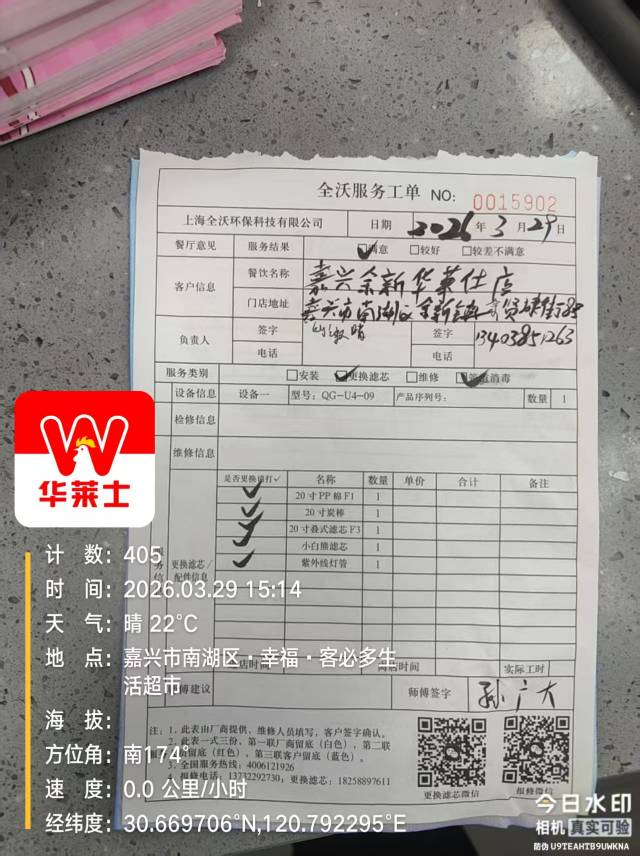 全沃服务工单 NO: 0015902
上海全沃环保科技有限公司 日期 2026年3月29日
餐厅意见 服务结果 ☑满意 □较好 □较差不满意
客户信息 餐饮名称 嘉兴余新华莱仕店
门店地址 嘉兴市南湖区余新镇
负责人 签字 签字
电话 电话 13403851263
服务类别 □安装 ☑更换滤芯 □维修 ☑管道消毒
设备信息 设备一 型号: QG-U4-09 产品序列号: 数量 1
检修信息
维修信息
更换滤芯/配件信息 是否更换请打✓ 名称 数量 单价 合计 备注
✓ 20寸PP棉F1 1
✓ 20寸炭棒 1
✓ 20寸叠式滤芯F3 1
小白熊滤芯 1
✓ 紫外线灯管 1
店时间 离店时间 实际工时
师傅建议 师傅签字 孙广大
注: 1.此表由厂商提供、维修人员填写,客户签字确认。
2.此表一式三份,第一联厂商留底(白色),第二联
留底(红色),第三联客户留底(蓝色)。
3.全国服务热线: 4006121926
4.报修电话: 13732292730, 更换滤芯: 18258897611
更换滤芯微信 报修微信
华莱士
计 数: 405
时 间: 2026.03.29 15:14
天 气: 晴 22°C
地 点: 嘉兴市南湖区·幸福·客必多生
活超市
海 拔:
方位角: 南174°
速 度: 0.0 公里/小时
经纬度: 30.669706°N,120.792295°E
今日水印
相机 真实可验
防伪 U9TEAHTB9UWKNA